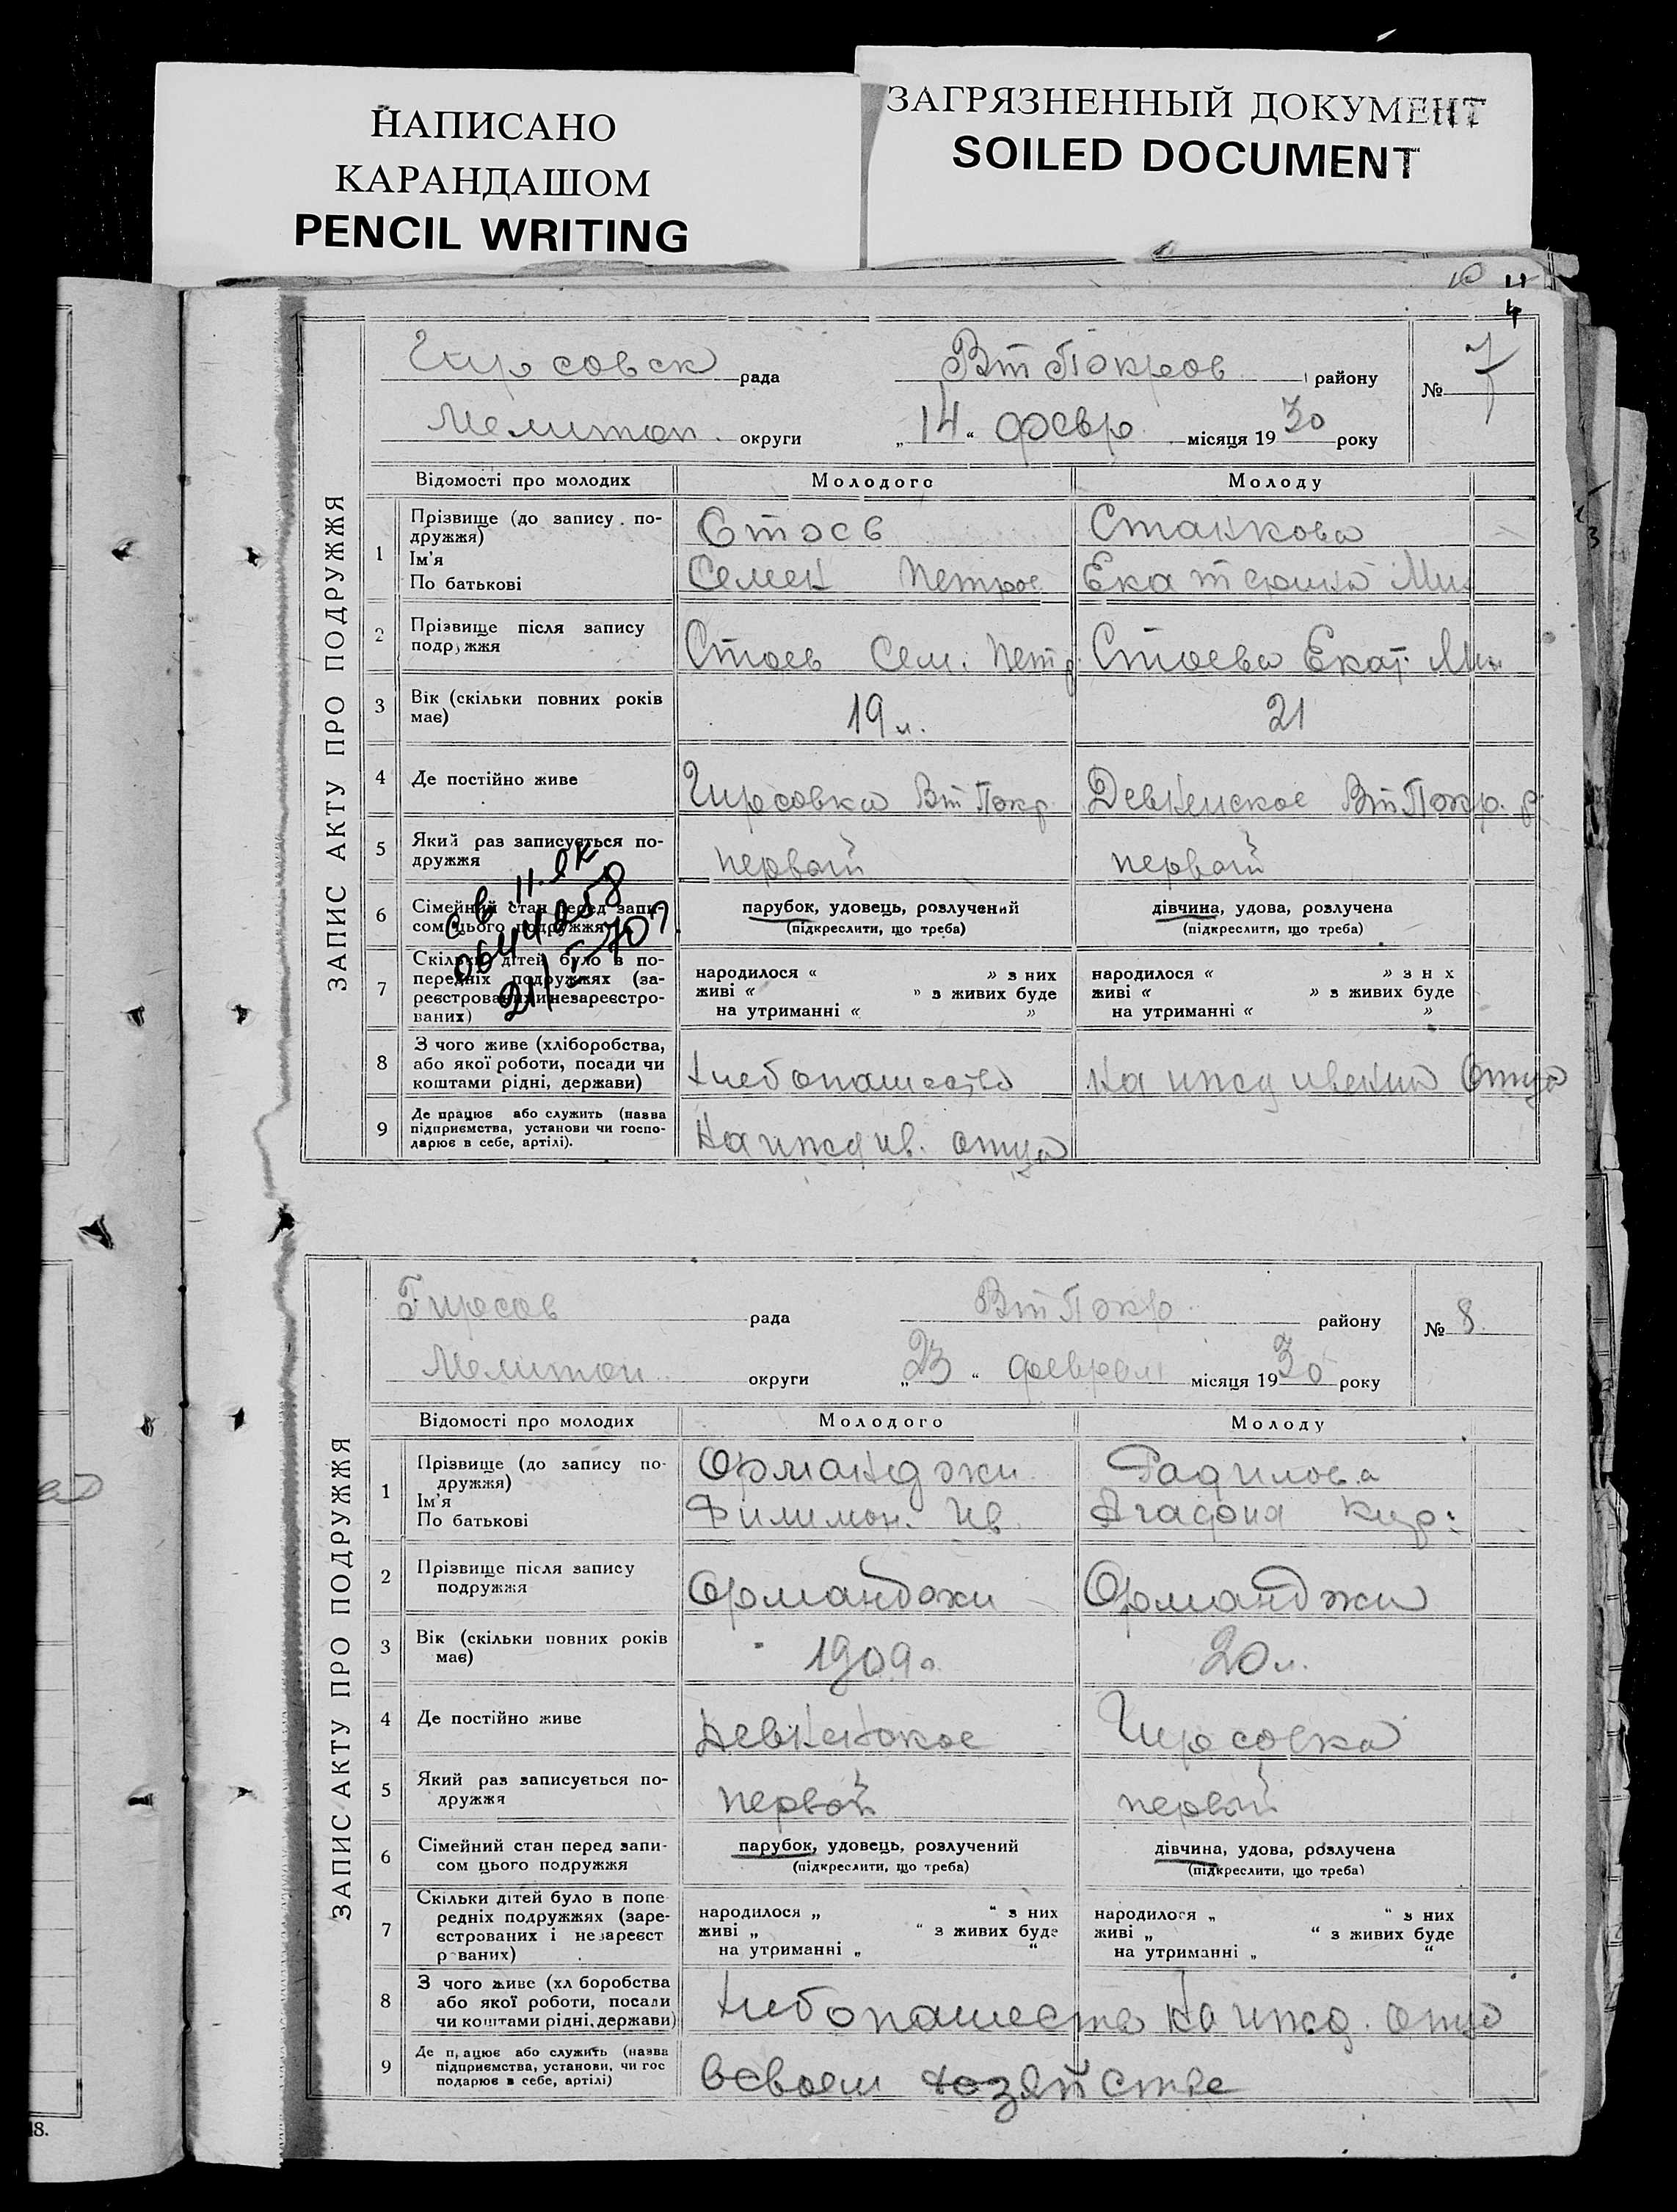 НАПИСАНО
КАРАНДАШОМ
PENCIL WRITING
ЗАГРЯЗНЕННЫЙ ДОКУМЕНТ
SOILED DOCUMENT
10 4
4
ЗАПИС АКТУ ПРО ПОДРУЖЖЯ
Гирсовск рада Вт Покров району № 7
Мелитоп. округи „14“ февр. місяця 1930 року
Відомості про молодих Молодого Молоду
1 Прізвище (до запису подружжя) Стоев Станкова
Ім'я
По батькові Семен Петров Екатерина Мих
2 Прізвище після запису подружжя Стоев Сем. Петр. Стоева Екат. Мих
3 Вік (скільки повних років має) 19 л. 21
4 Де постійно живе Гирсовка Вт Покр. Девненское Вт Покр. р.
5 Який раз записується подружжя первый первый
6 Сімейний стан перед записом цього подружжя парубок, удовець, розлучений дівчина, удова, розлучена
(підкреслити, що треба) (підкреслити, що треба)
св II ЯК
0644258
21/I-70г.
7 Скільки дітей було в попередніх подружжях (зареєстрованих и незареєстрованих)
народилося « » з них народилося « » з н х
живі « » з живих буде живі « » з живих буде
на утриманні « » на утриманні « »
8 З чого живе (хліборобства, або якої роботи, посади чи коштами рідні, держави) хлебопашество на иждивении отца
9 Де працює або служить (назва підприємства, установи чи господарює в себе, артілі). на иждив. отца
ЗАПИС АКТУ ПРО ПОДРУЖЖЯ
Гирсов рада Вт Покр району № 8.
Мелитоп. округи „23“ феврал місяця 1930 року
Відомості про молодих Молодого Молоду
1 Прізвище (до запису подружжя) Орманджи Радилова
Ім'я
По батькові Филимон. Ив. Агафия Кир.
2 Прізвище після запису подружжя Орманджи Орманджи
3 Вік (скільки повних років має) 1909 г. 20 л.
4 Де постійно живе Девненское Гирсовка
5 Який раз записується подружжя первый первый
6 Сімейний стан перед записом цього подружжя парубок, удовець, розлучений дівчина, удова, розлучена
(підкреслити, що треба) (підкреслити, що треба)
7 Скільки дітей було в попередніх подружжях (зареєстрованих і незареєст р ваних)
народилося „ “ з них народилося „ “ з них
живі „ “ з живих буде живі „ “ з живих буде
на утриманні „ “ на утриманні „ “
8 З чого живе (хл боробства або якої роботи, посади чи коштами рідні, держави) хлебопашеств на ижд. отца
9 Де працює або служить (назва підприємства, установи, чи господарює в себе, артілі) в своем хозяйстве
18.